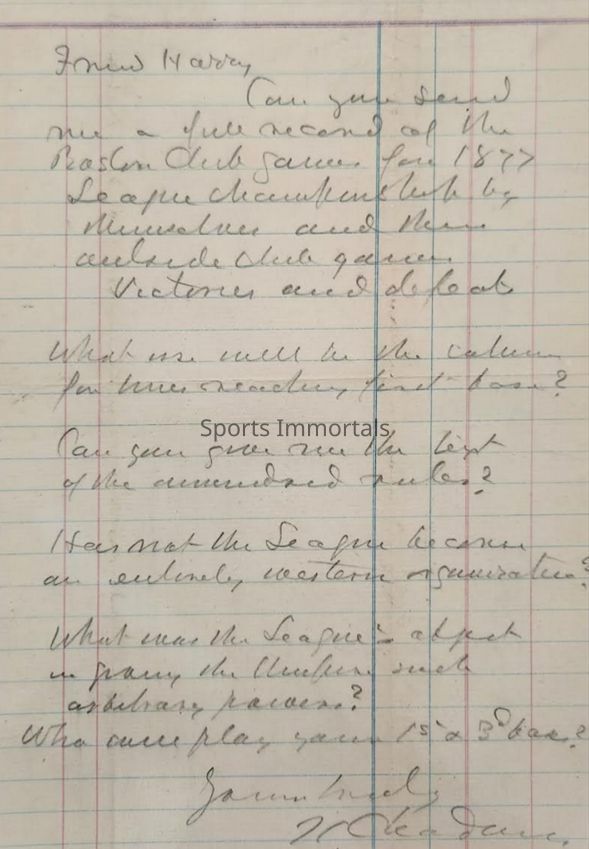 Friend Harry
Can you send
me a full record of the
Boston Club games for 1877
League championship by
themselves and then
outside club games
Victories and defeats
What use will be the column
for times reaching first base?
Sports Immortals
Can you give me the text
of the amended rules?
Has not the League become
an entirely western organization?
What was the League's object
in giving the Umpire such
arbitrary powers?
Who will play your 1st & 3d base?
Yours truly
H Chadwick